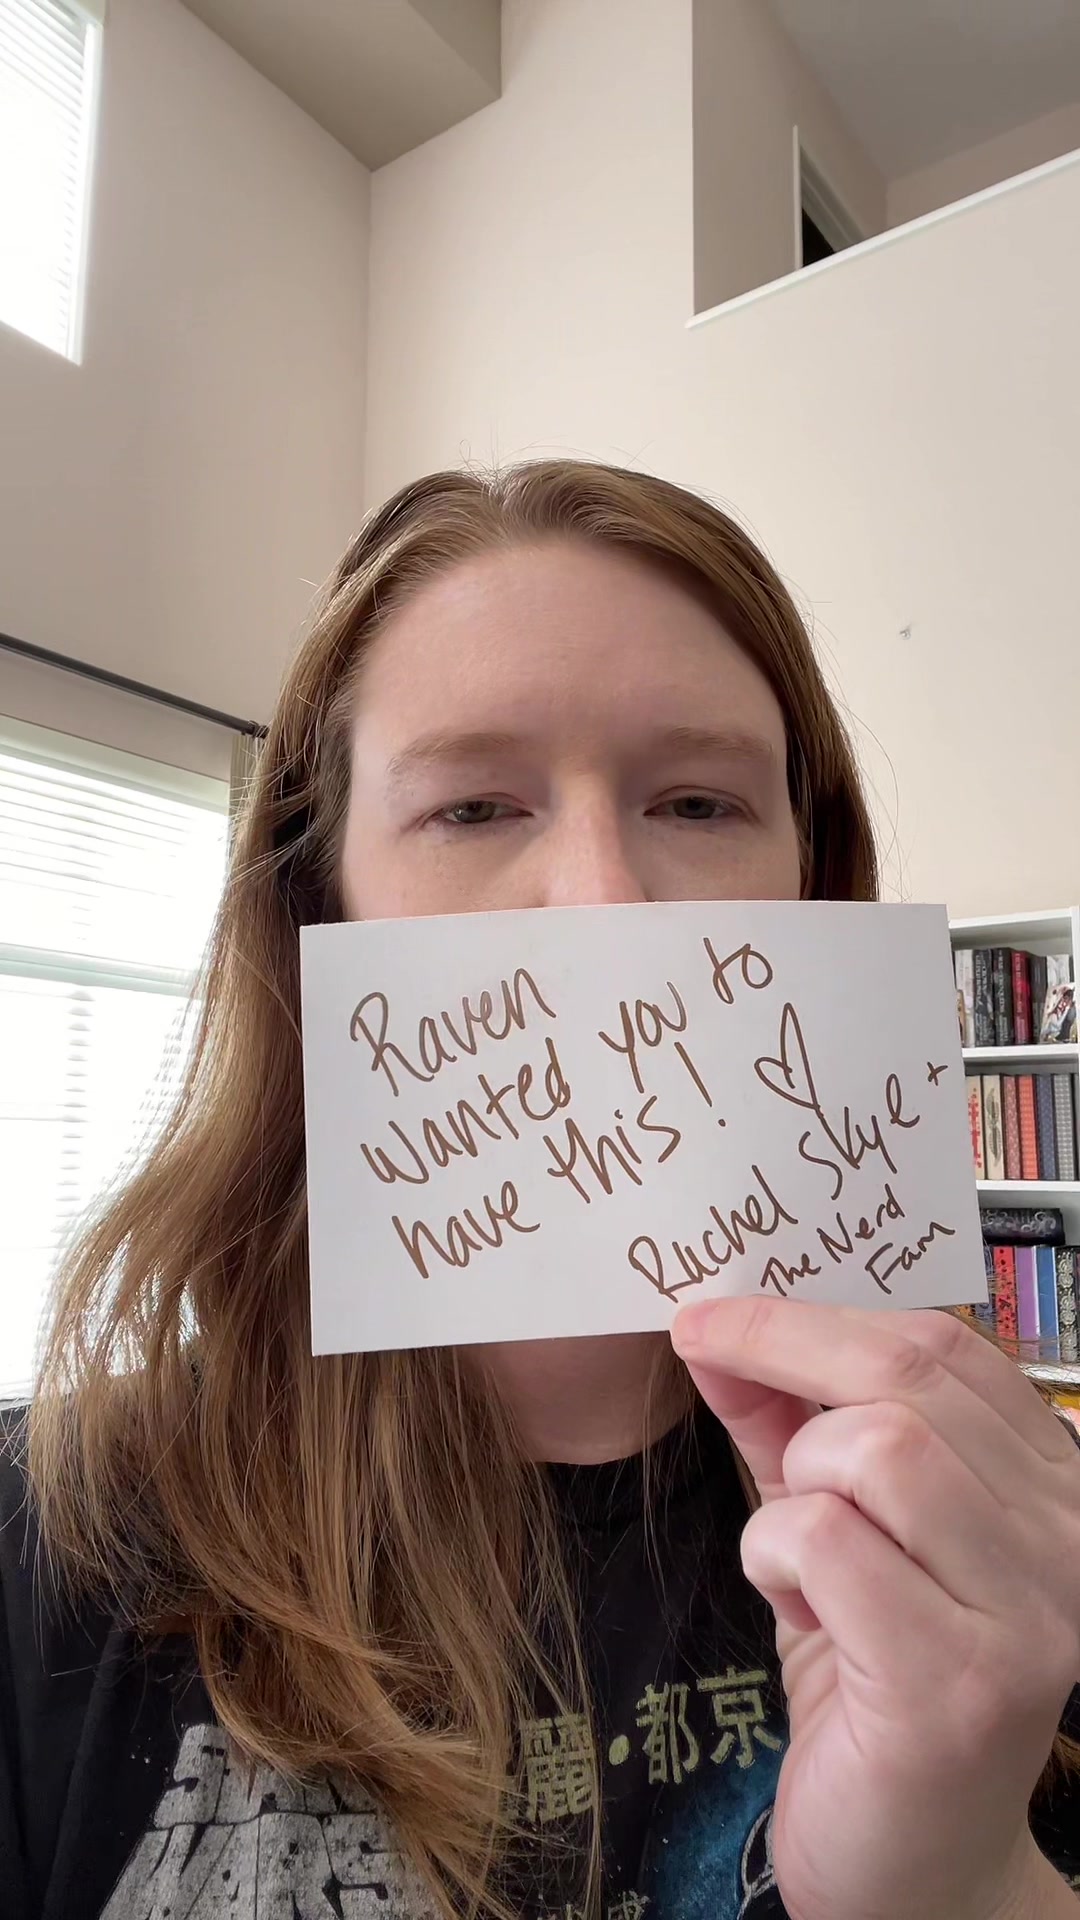 Raven
wanted you to
have this! ♡
Rachel Skye +
The Nerd
Fam
麗・都京
WARS